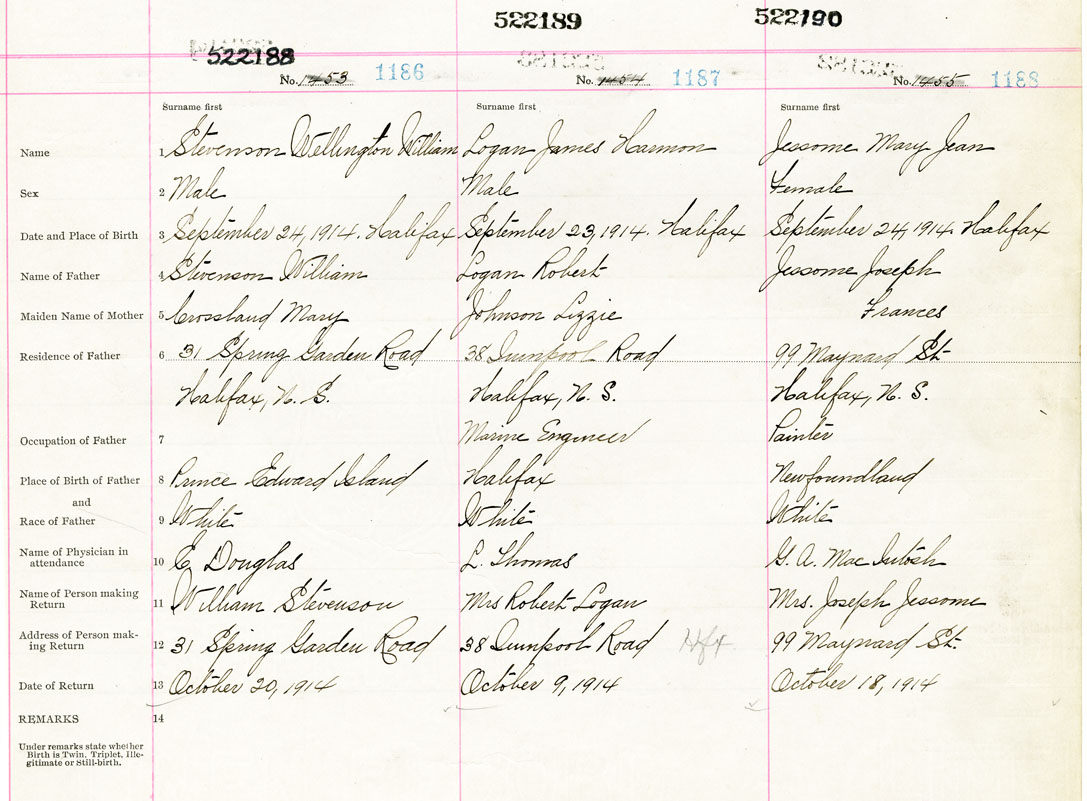 522188 522189 522190
No. 1453 1186 No. 1454 1187 No. 1455 1188
Surname first Surname first Surname first
Name 1 Stevenson Wellington William Logan James Harmon Jessome Mary Jean
Sex 2 Male Male Female
Date and Place of Birth 3 September 24, 1914. Halifax September 23, 1914. Halifax September 24, 1914 Halifax
Name of Father 4 Stevenson William Logan Robert Jessome Joseph
Maiden Name of Mother 5 Crossland Mary Johnson Lizzie Frances
Residence of Father 6 31 Spring Garden Road 38 Road 99 Maynard St.
Halifax, N. S. Halifax, N. S. Halifax, N. S.
Occupation of Father 7 Marine Engineer Painter
Place of Birth of Father 8 Prince Edward Island Halifax Newfoundland
and
Race of Father 9 White White White
Name of Physician in
attendance 10 E. Douglas L. Thomas G. A. MacIntosh
Name of Person making
Return 11 William Stevenson Mrs Robert Logan Mrs. Joseph Jessome
Address of Person mak-
ing Return 12 31 Spring Garden Road 38 Road Hfx 99 Maynard St.
Date of Return 13 October 20, 1914 October 9, 1914 October 18, 1914
REMARKS 14
Under remarks state whether
Birth is Twin, Triplet, Ille-
gitimate or Still-birth.